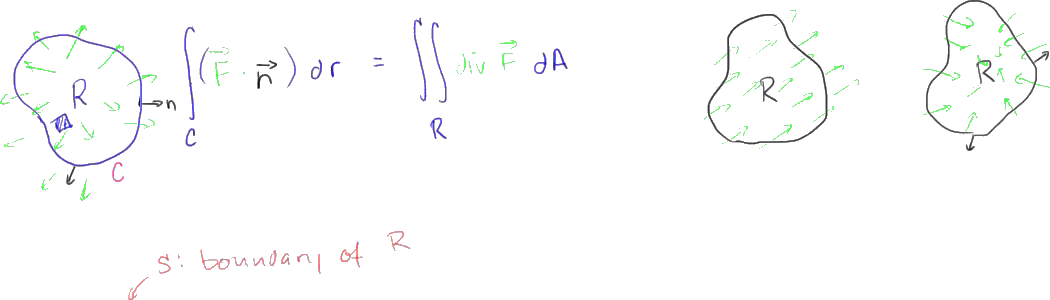 R
n
C
∫_C (F⃗ · n⃗) dr = ∬_R div F⃗ dA
R
R
S: boundary of R